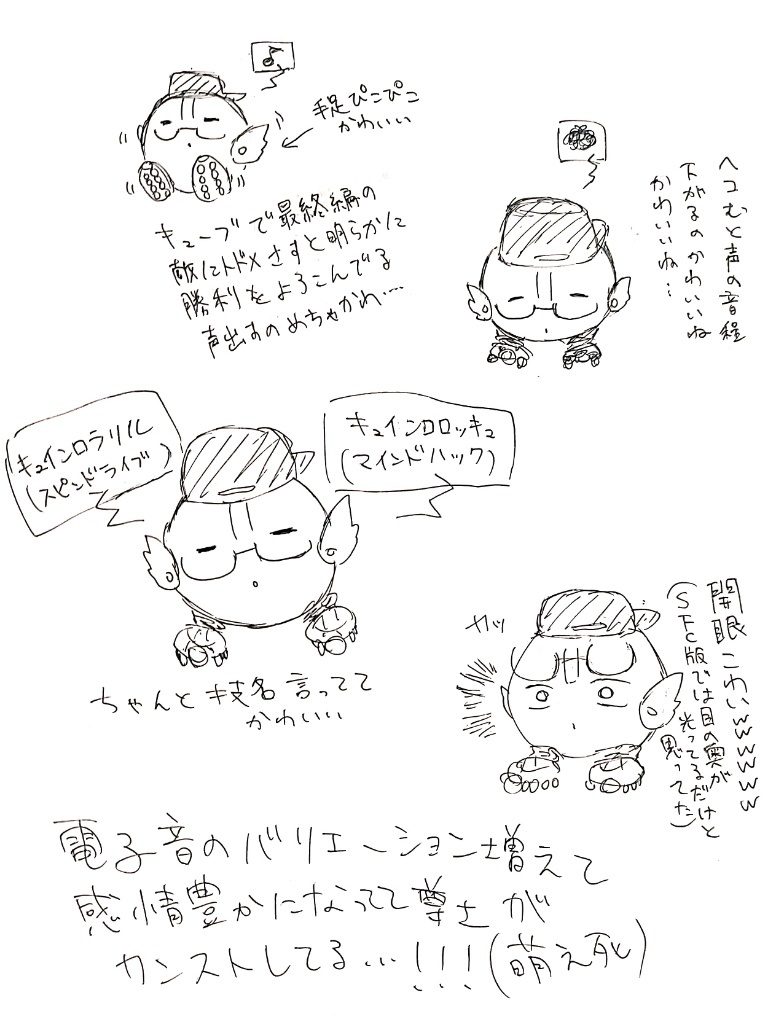 手足ぴこぴこ
かわいい
キューブで最終編の
敵にトドメさすと明らかに
勝利をよろこんでる
声出すのめちゃかわ…
ヘコむと声の音程
下がるのかわいいね
かわいいね…
キュインロラリル
(スピンドライブ)
キュインロロッキュ
(マインドハック)
ちゃんと技名言ってて
かわいい
カッ
開眼こわいwwwwww
(SFC版では目の奥が
光ってるだけと
思ってた)
電子音のバリエーション増えて
感情豊かになってて尊さが
カンストしてる…!!!(萌え死)